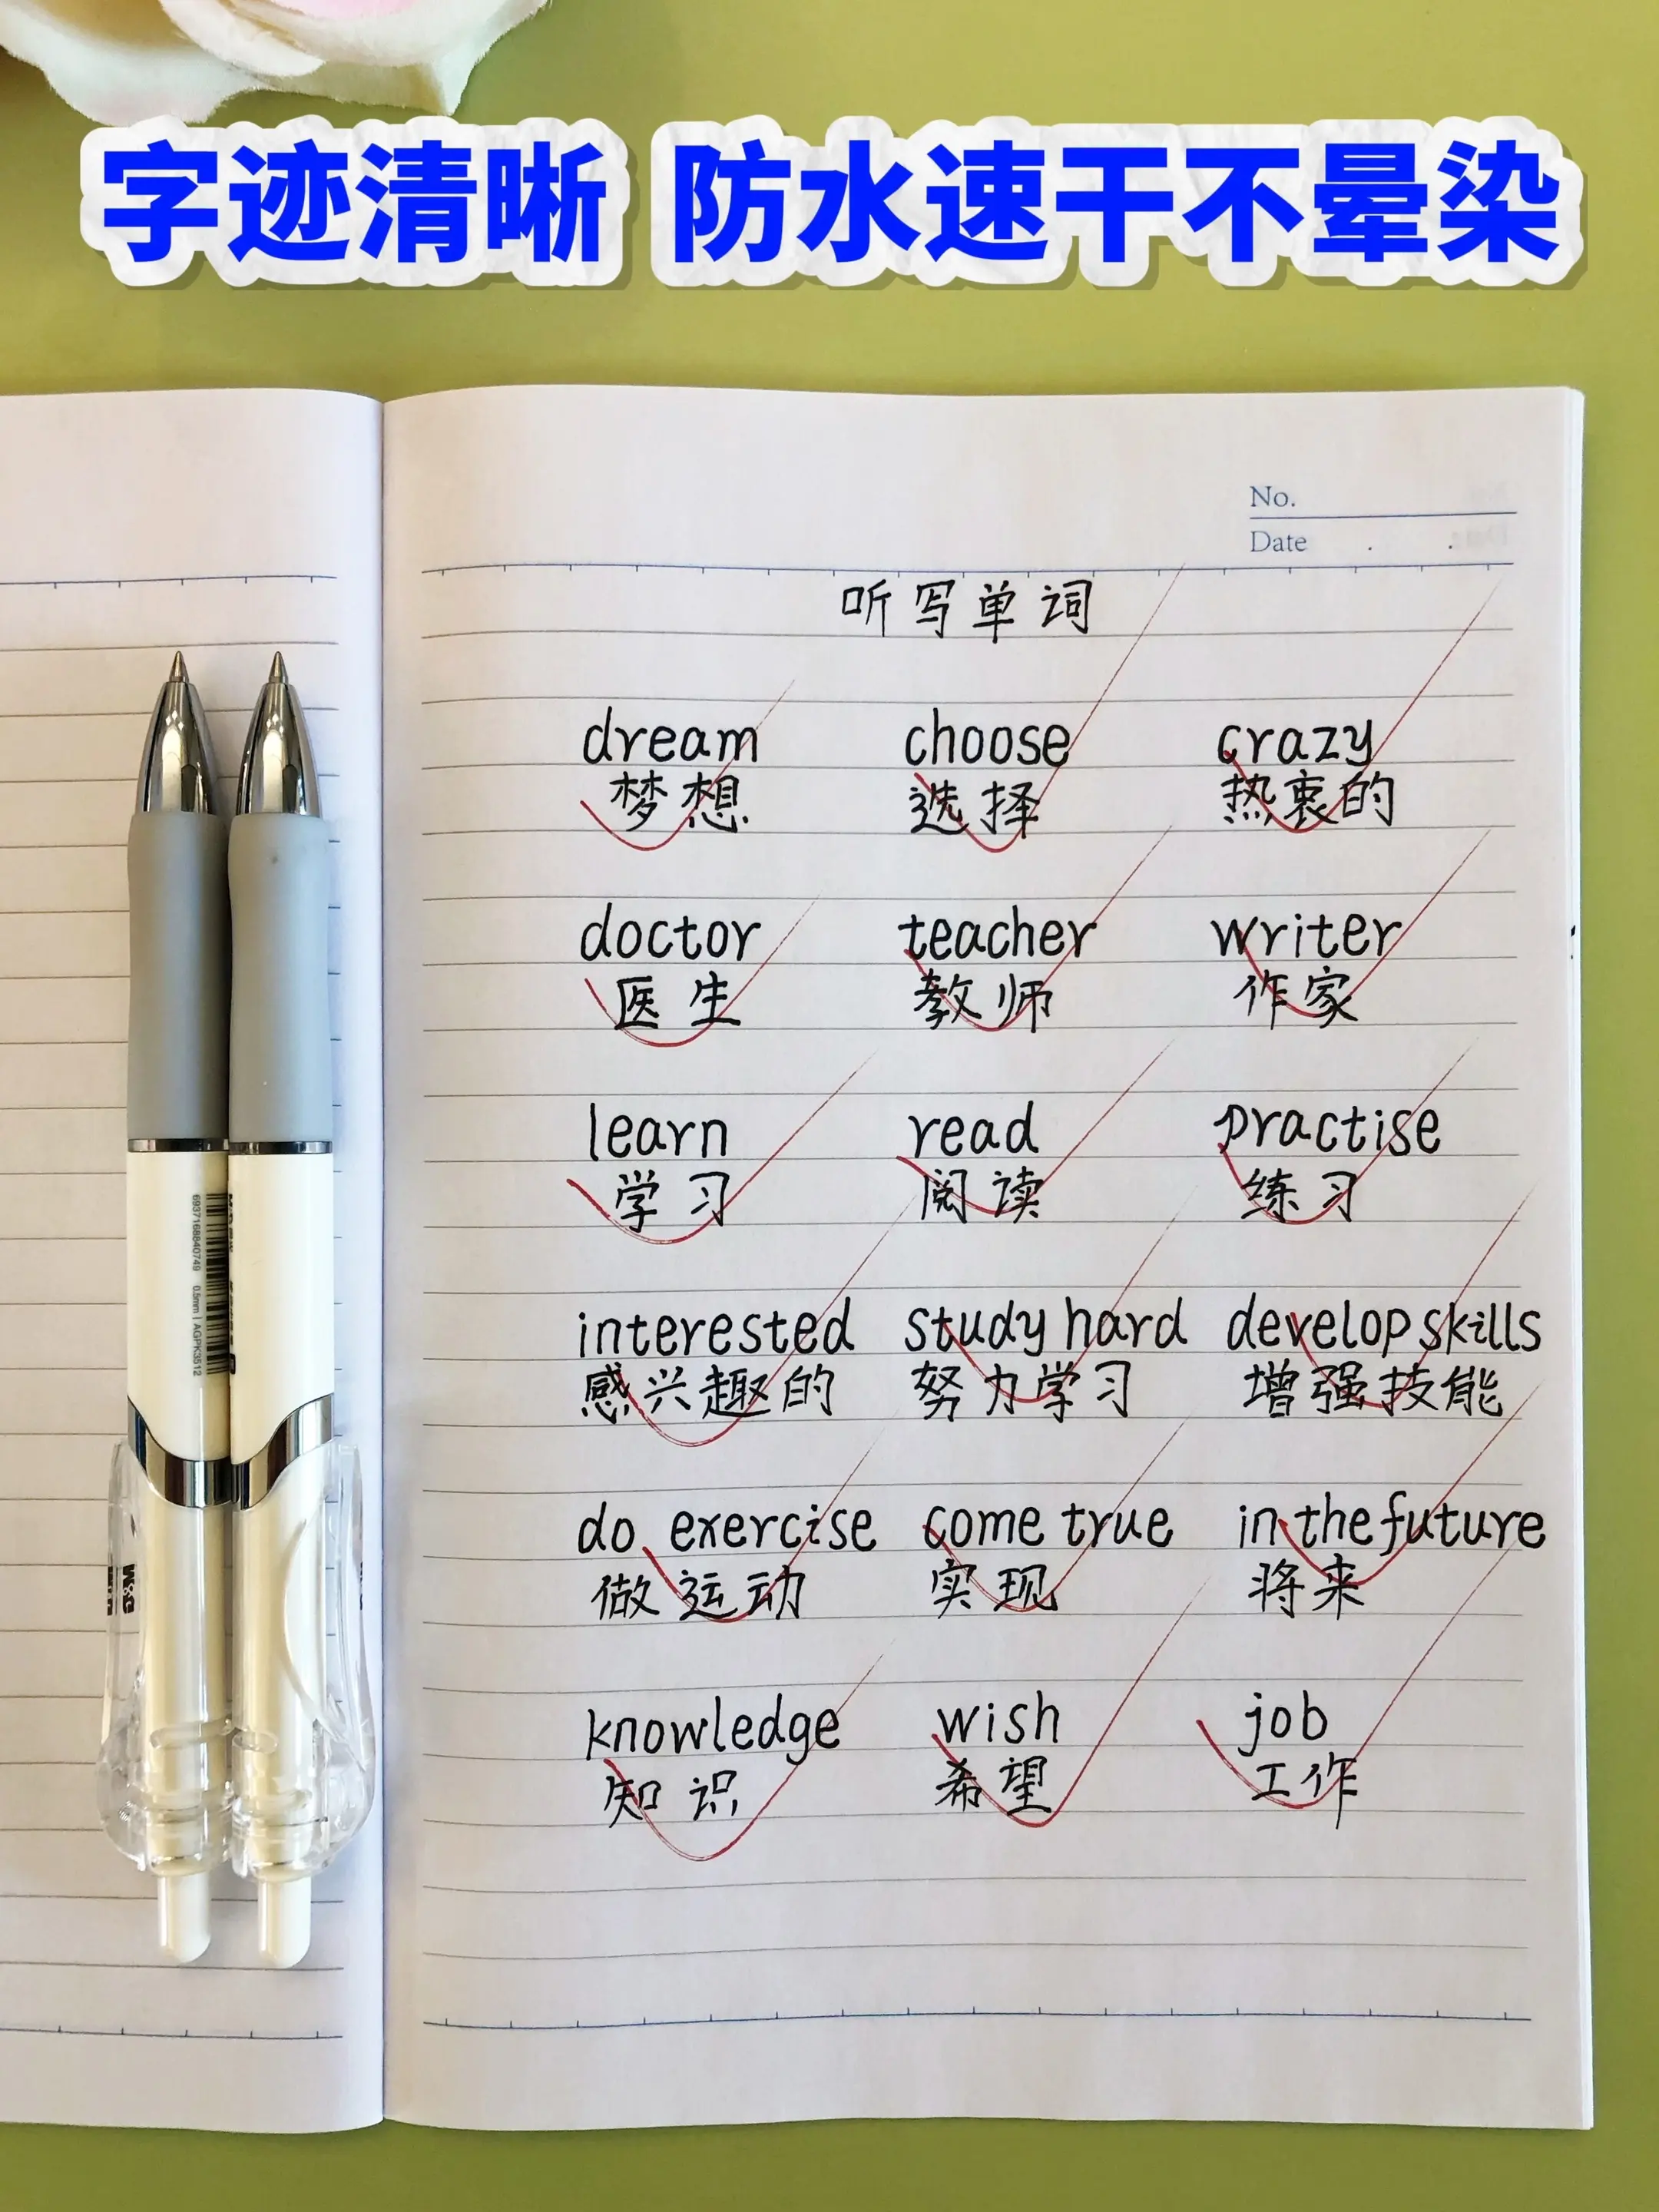 字迹清晰 防水速干不晕染
No.
Date . .
听写单词
dream choose crazy
梦想 选择 热衷的
doctor teacher writer
医生 教师 作家
learn read practise
学习 阅读 练习
interested study hard develop skills
感兴趣的 努力学习 增强技能
do exercise come true in the future
做运动 实现 将来
knowledge wish job
知识 希望 工作
6937168840749 0.5mm | AGPK3512
M&G